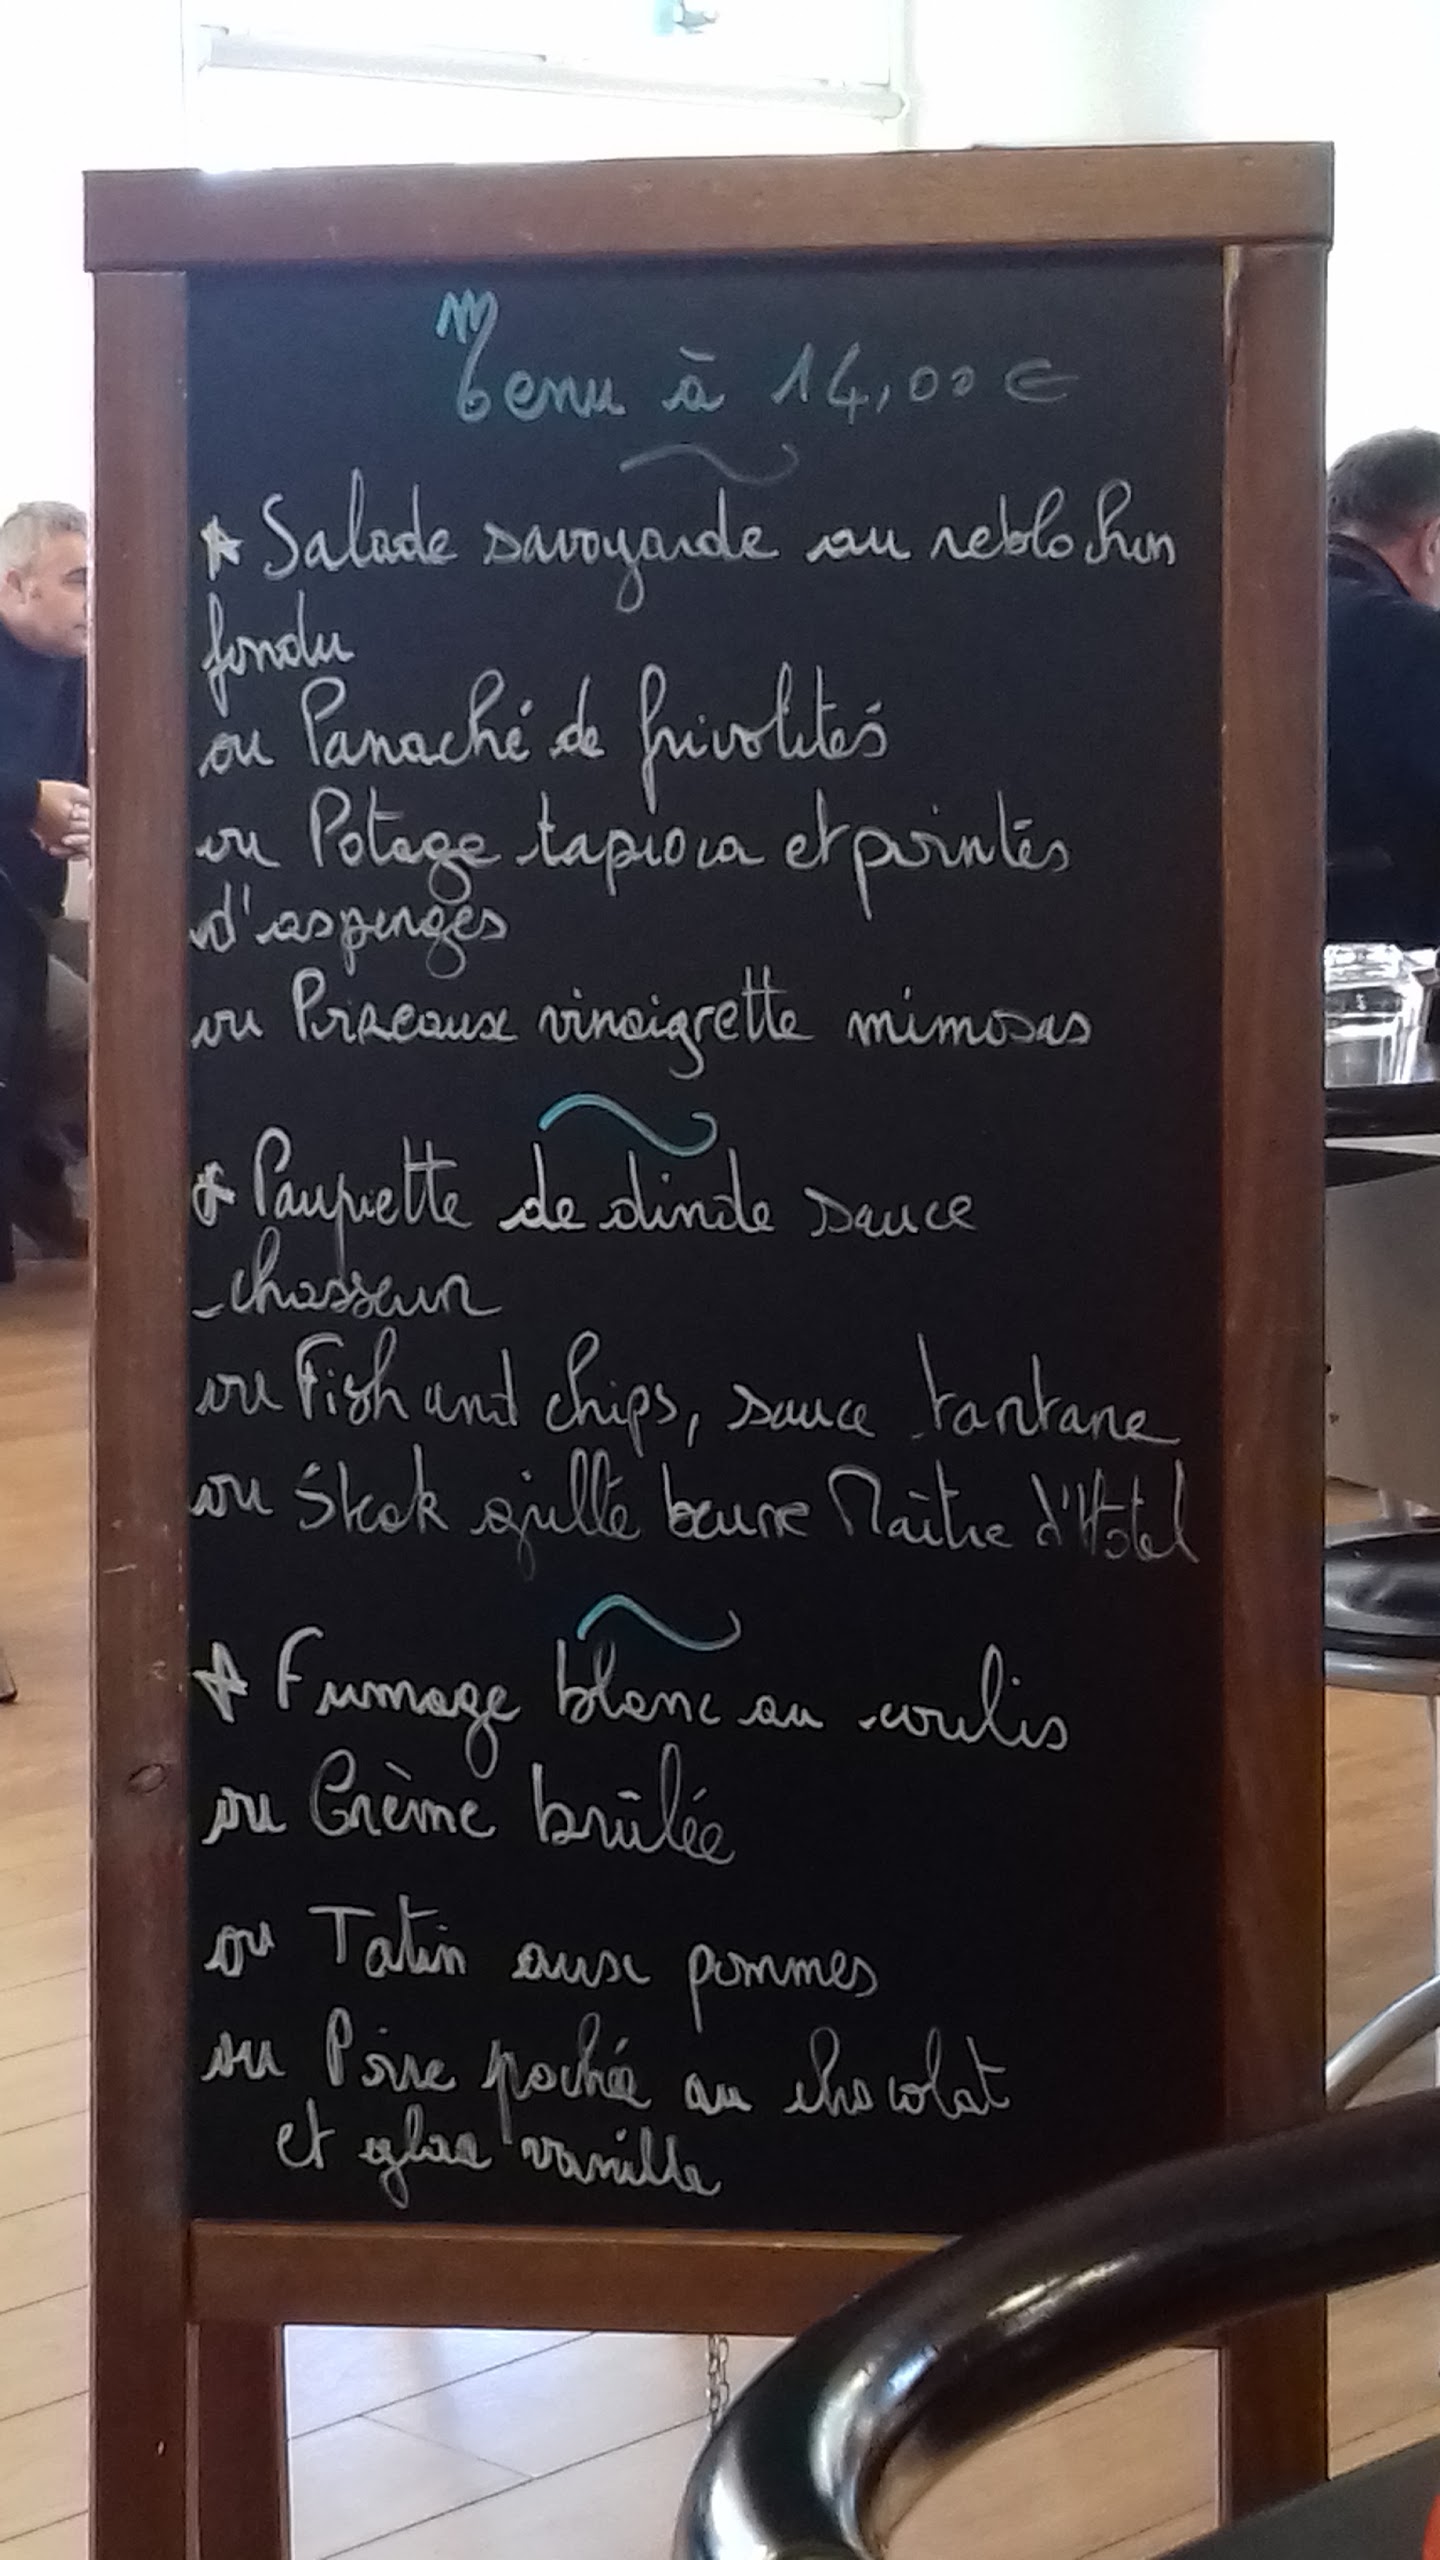 Menu à 14,00 €
* Salade savoyarde au reblochon
fondu
ou Panaché de frivolités
ou Potage tapioca et pointes
d'asperges
ou Poireaux vinaigrette mimosas
* Paupiette de dinde sauce
chasseur
ou Fish and chips, sauce tartare
ou Steak grillé beurre Maître d'Hotel
* Fromage blanc au coulis
ou Crème brûlée
ou Tatin aux pommes
ou Poire pochée au chocolat
et glace vanille